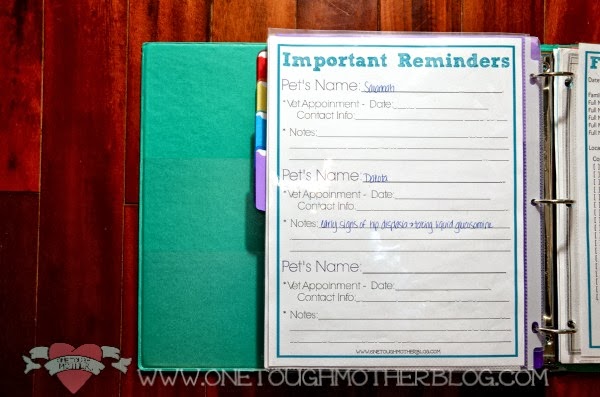 Important Reminders
Pet's Name: Savannah
*Vet Appointment - Date:
Contact Info:
* Notes:
Pet's Name: Dakota
*Vet Appointment - Date:
Contact Info:
* Notes: early signs of hip displasia + taking liquid glucosamine
Pet's Name:
*Vet Appointment - Date:
Contact Info:
* Notes:
WWW.ONETOUGHMOTHERBLOG.COM
F
Date
Famil
Full N
Full N
Full N
Full N
Full N
Loca
ONE TOUGH
MOTHER
WWW.ONETOUGHMOTHERBLOG.COM